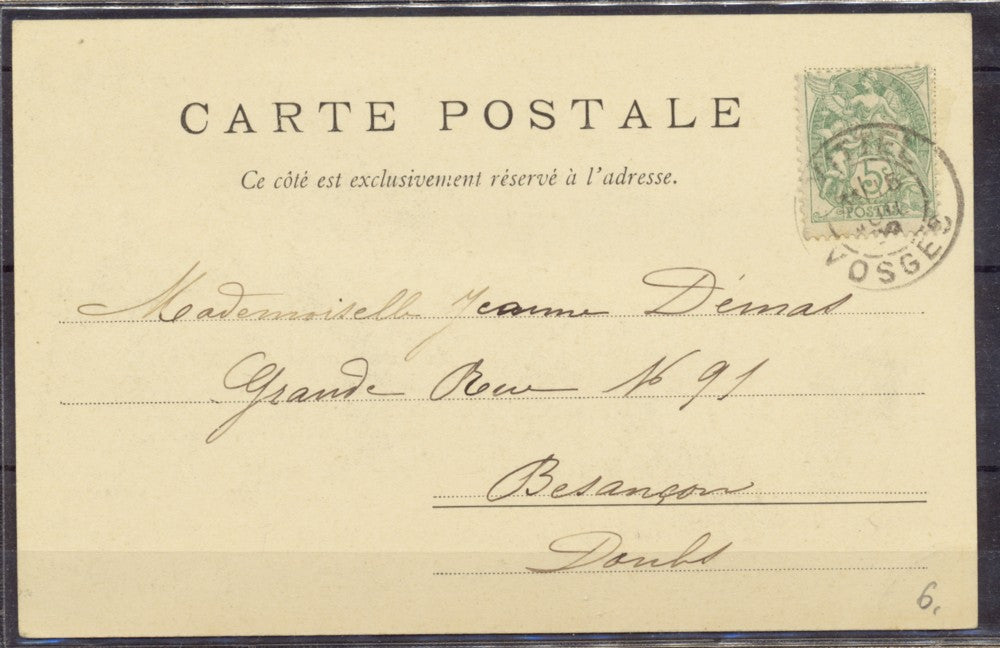 CARTE POSTALE
Ce côté est exclusivement réservé à l'adresse.
5
POSTES
VITTEL
VOSGES
Mademoiselle Jeanne Démas
Grande Rue No 91
Besançon
Doubs
6.